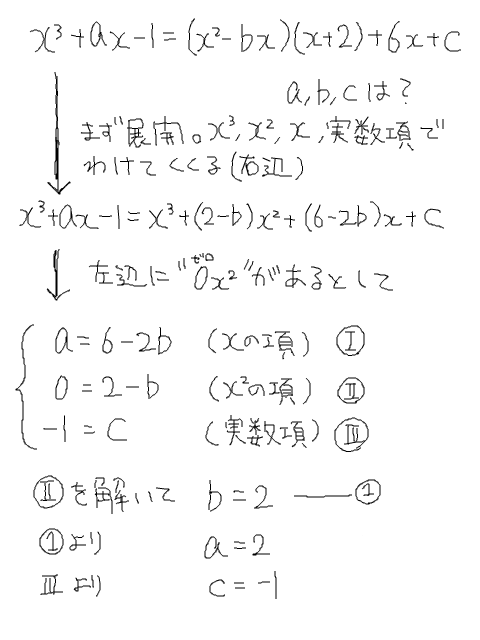 x³+ax-1=(x²-bx)(x+2)+6x+c
a,b,cは?
まず展開。x³,x²,x,実数項で
わけてくくる(右辺)
x³+ax-1=x³+(2-b)x²+(6-2b)x+c
左辺に"0x²"があるとして
ゼロ
a=6-2b (xの項) Ⅰ
0=2-b (x²の項) Ⅱ
-1=c (実数項) Ⅲ
Ⅱを解いて b=2 ―①
①より a=2
Ⅲより c=-1